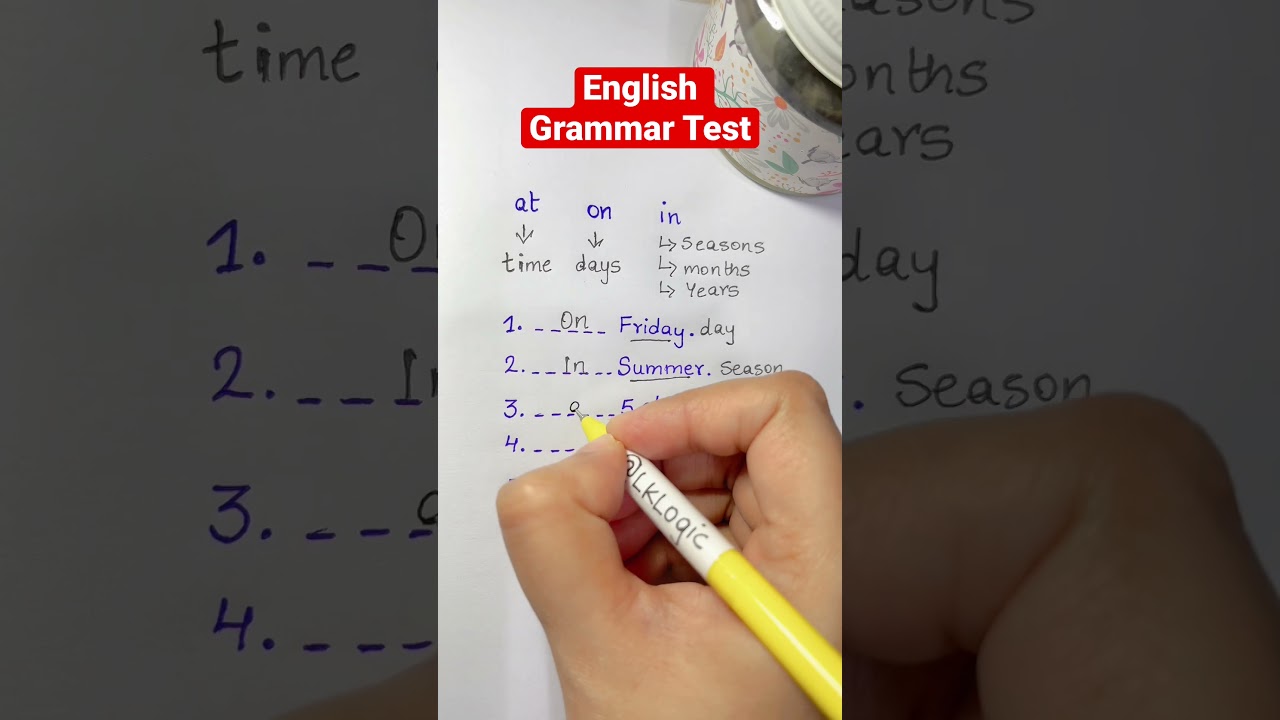 English
Grammar Test
at on in
time days
↳ Seasons
↳ months
↳ Years
1. _ _ On _ _ Friday. day
2. _ _ In _ _ Summer. Season
3. _ _ _ a _ _ 5
4. _ _ _
@LKLogic